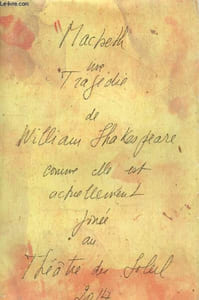 "Macbeth"
une
Tragédie
de
William Shakespeare
comme elle est
actuellement
jouée
au
Théâtre du Soleil
2014